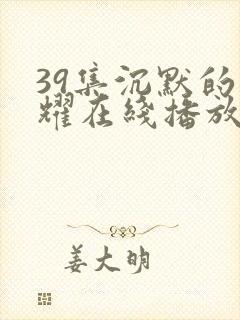 39集沉默的
耀在线播放
姜大明